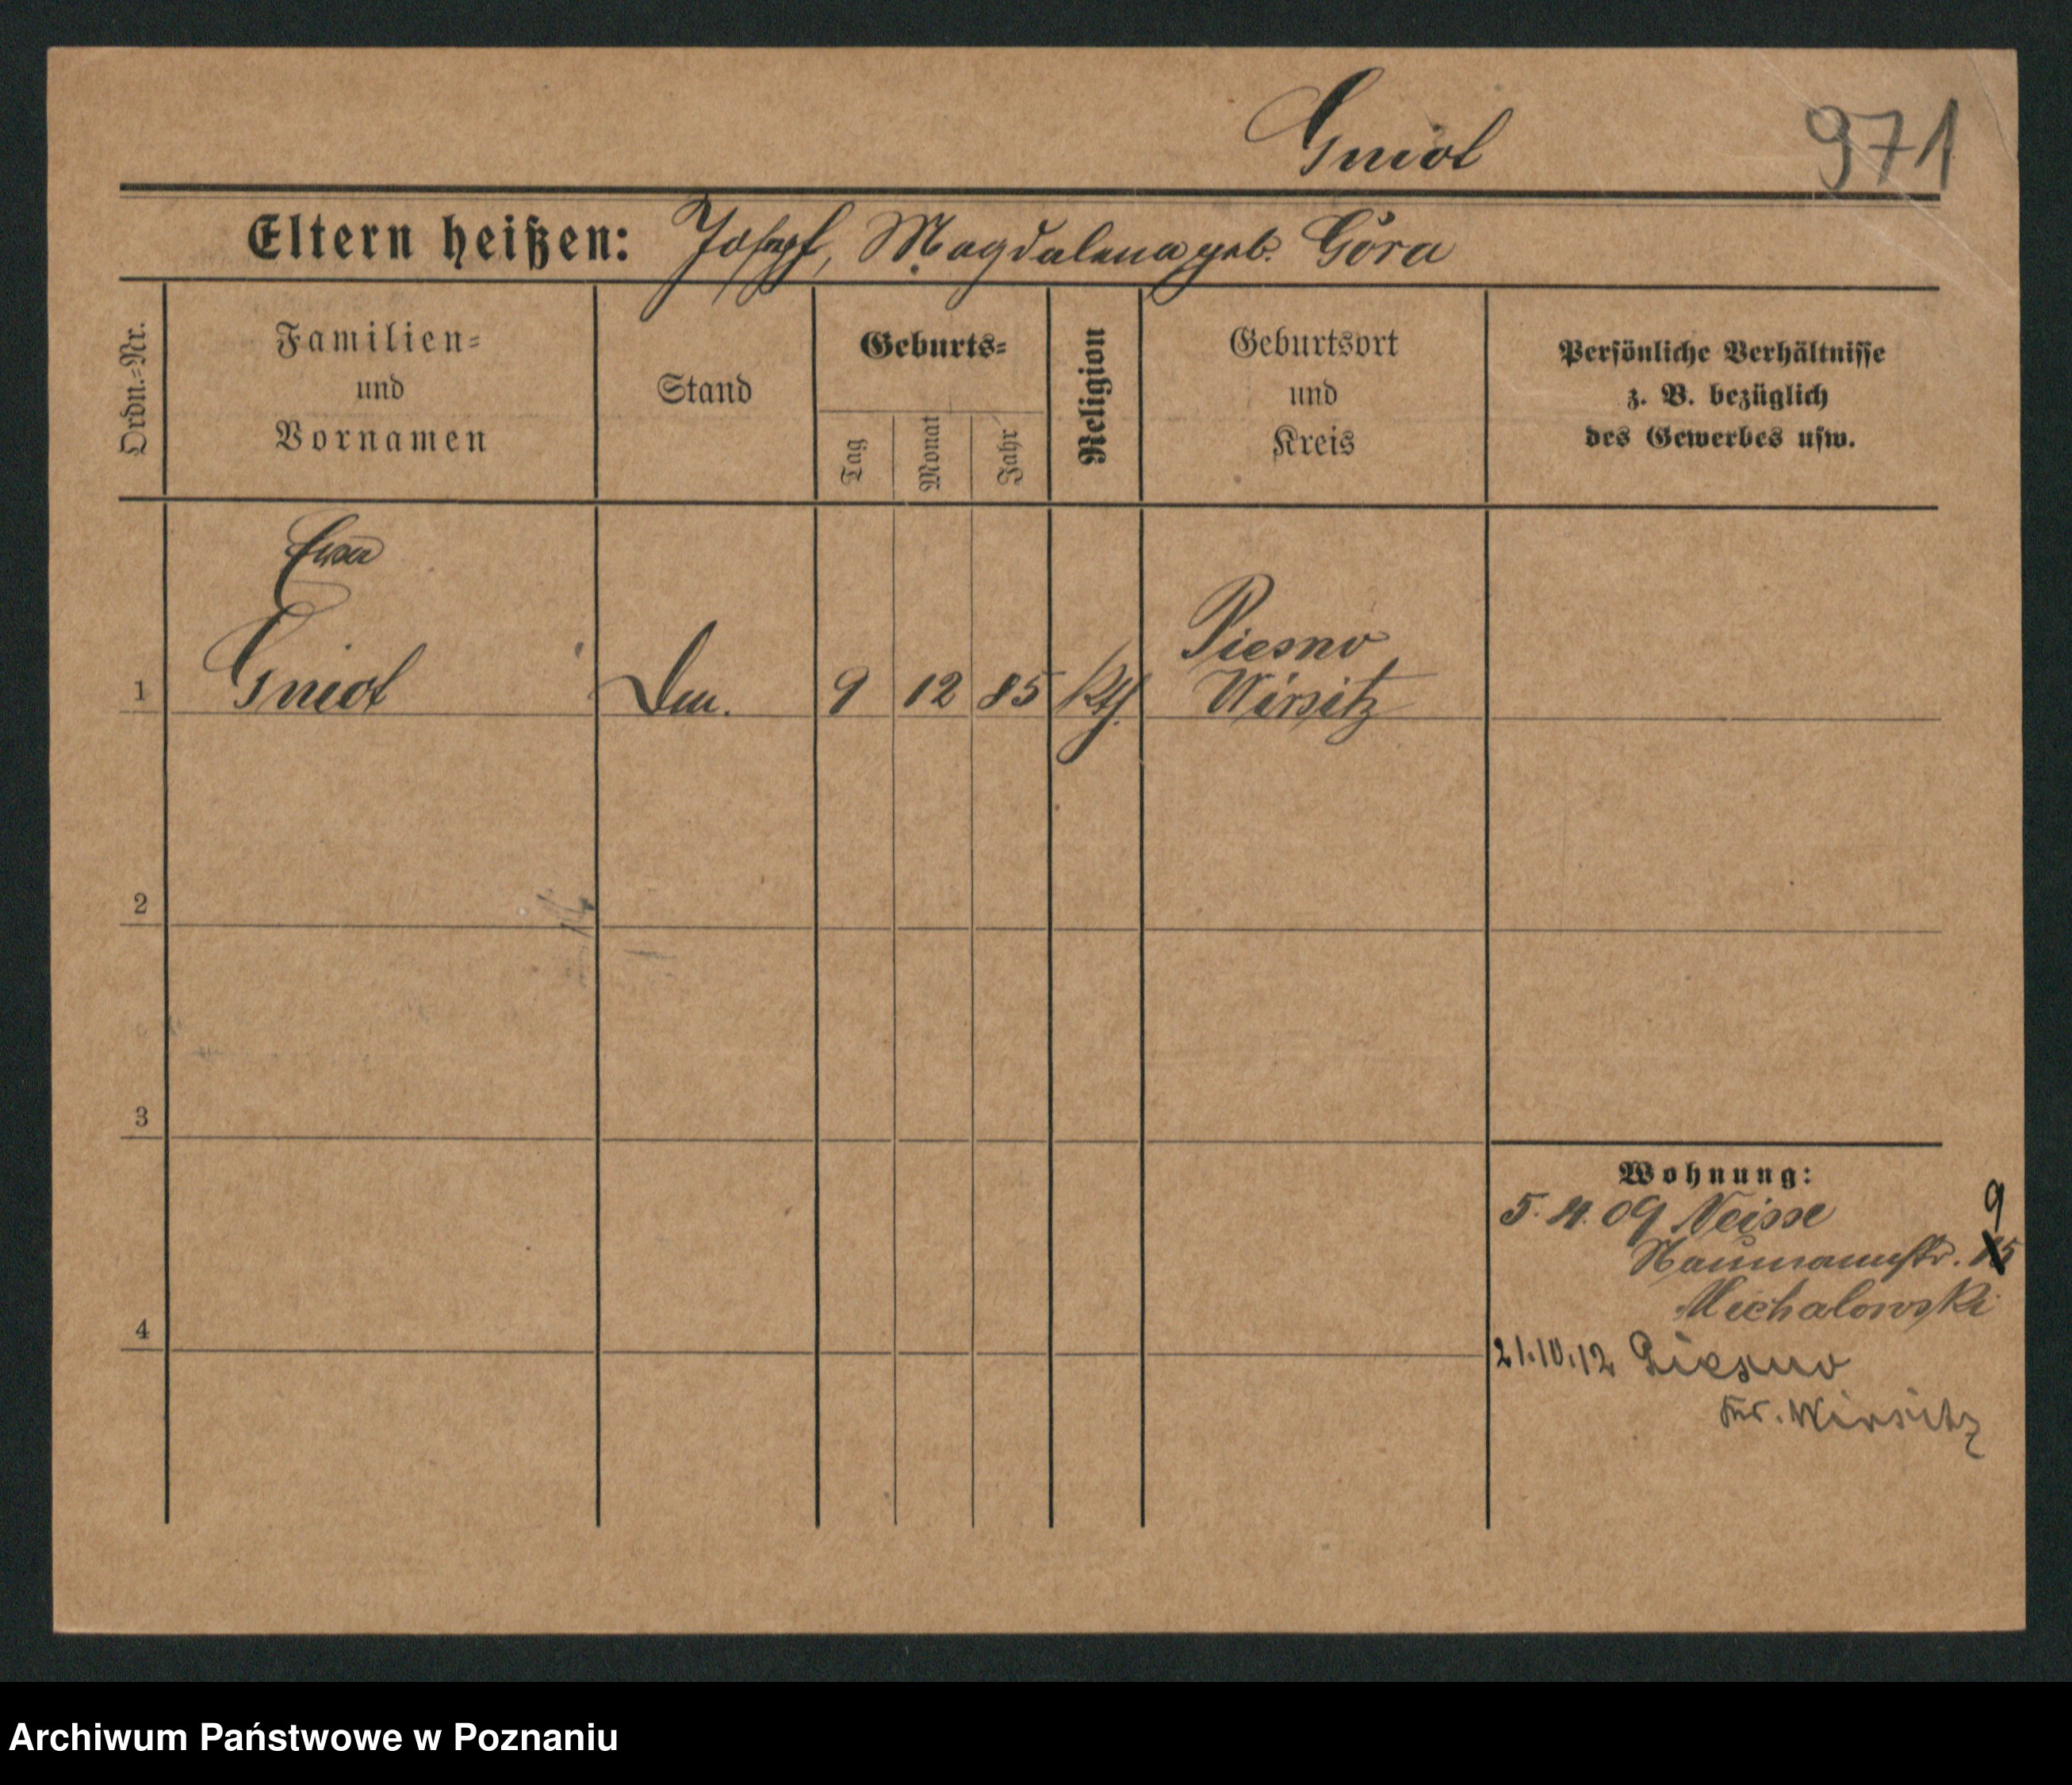 Gniot
971
Eltern heißen: Josepf, Magdalena geb. Góra
Ordn.-Nr.
Familien-
und
Vornamen
Stand
Geburts-
Tag
Monat
Jahr
Religion
Geburtsort
und
Kreis
Persönliche Verhältnisse
z. B. bezüglich
des Gewerbes usw.
Ewa
1 Gniot 9 12 85 kth. Piesno
Wirsitz
2
3
4
Wohnung:
5. 4. 09 Neisse
9
Naumannstr. 15
Michalowski
21.10.12 Piesno
Kr. Wirsitz
Archiwum Państwowe w Poznaniu